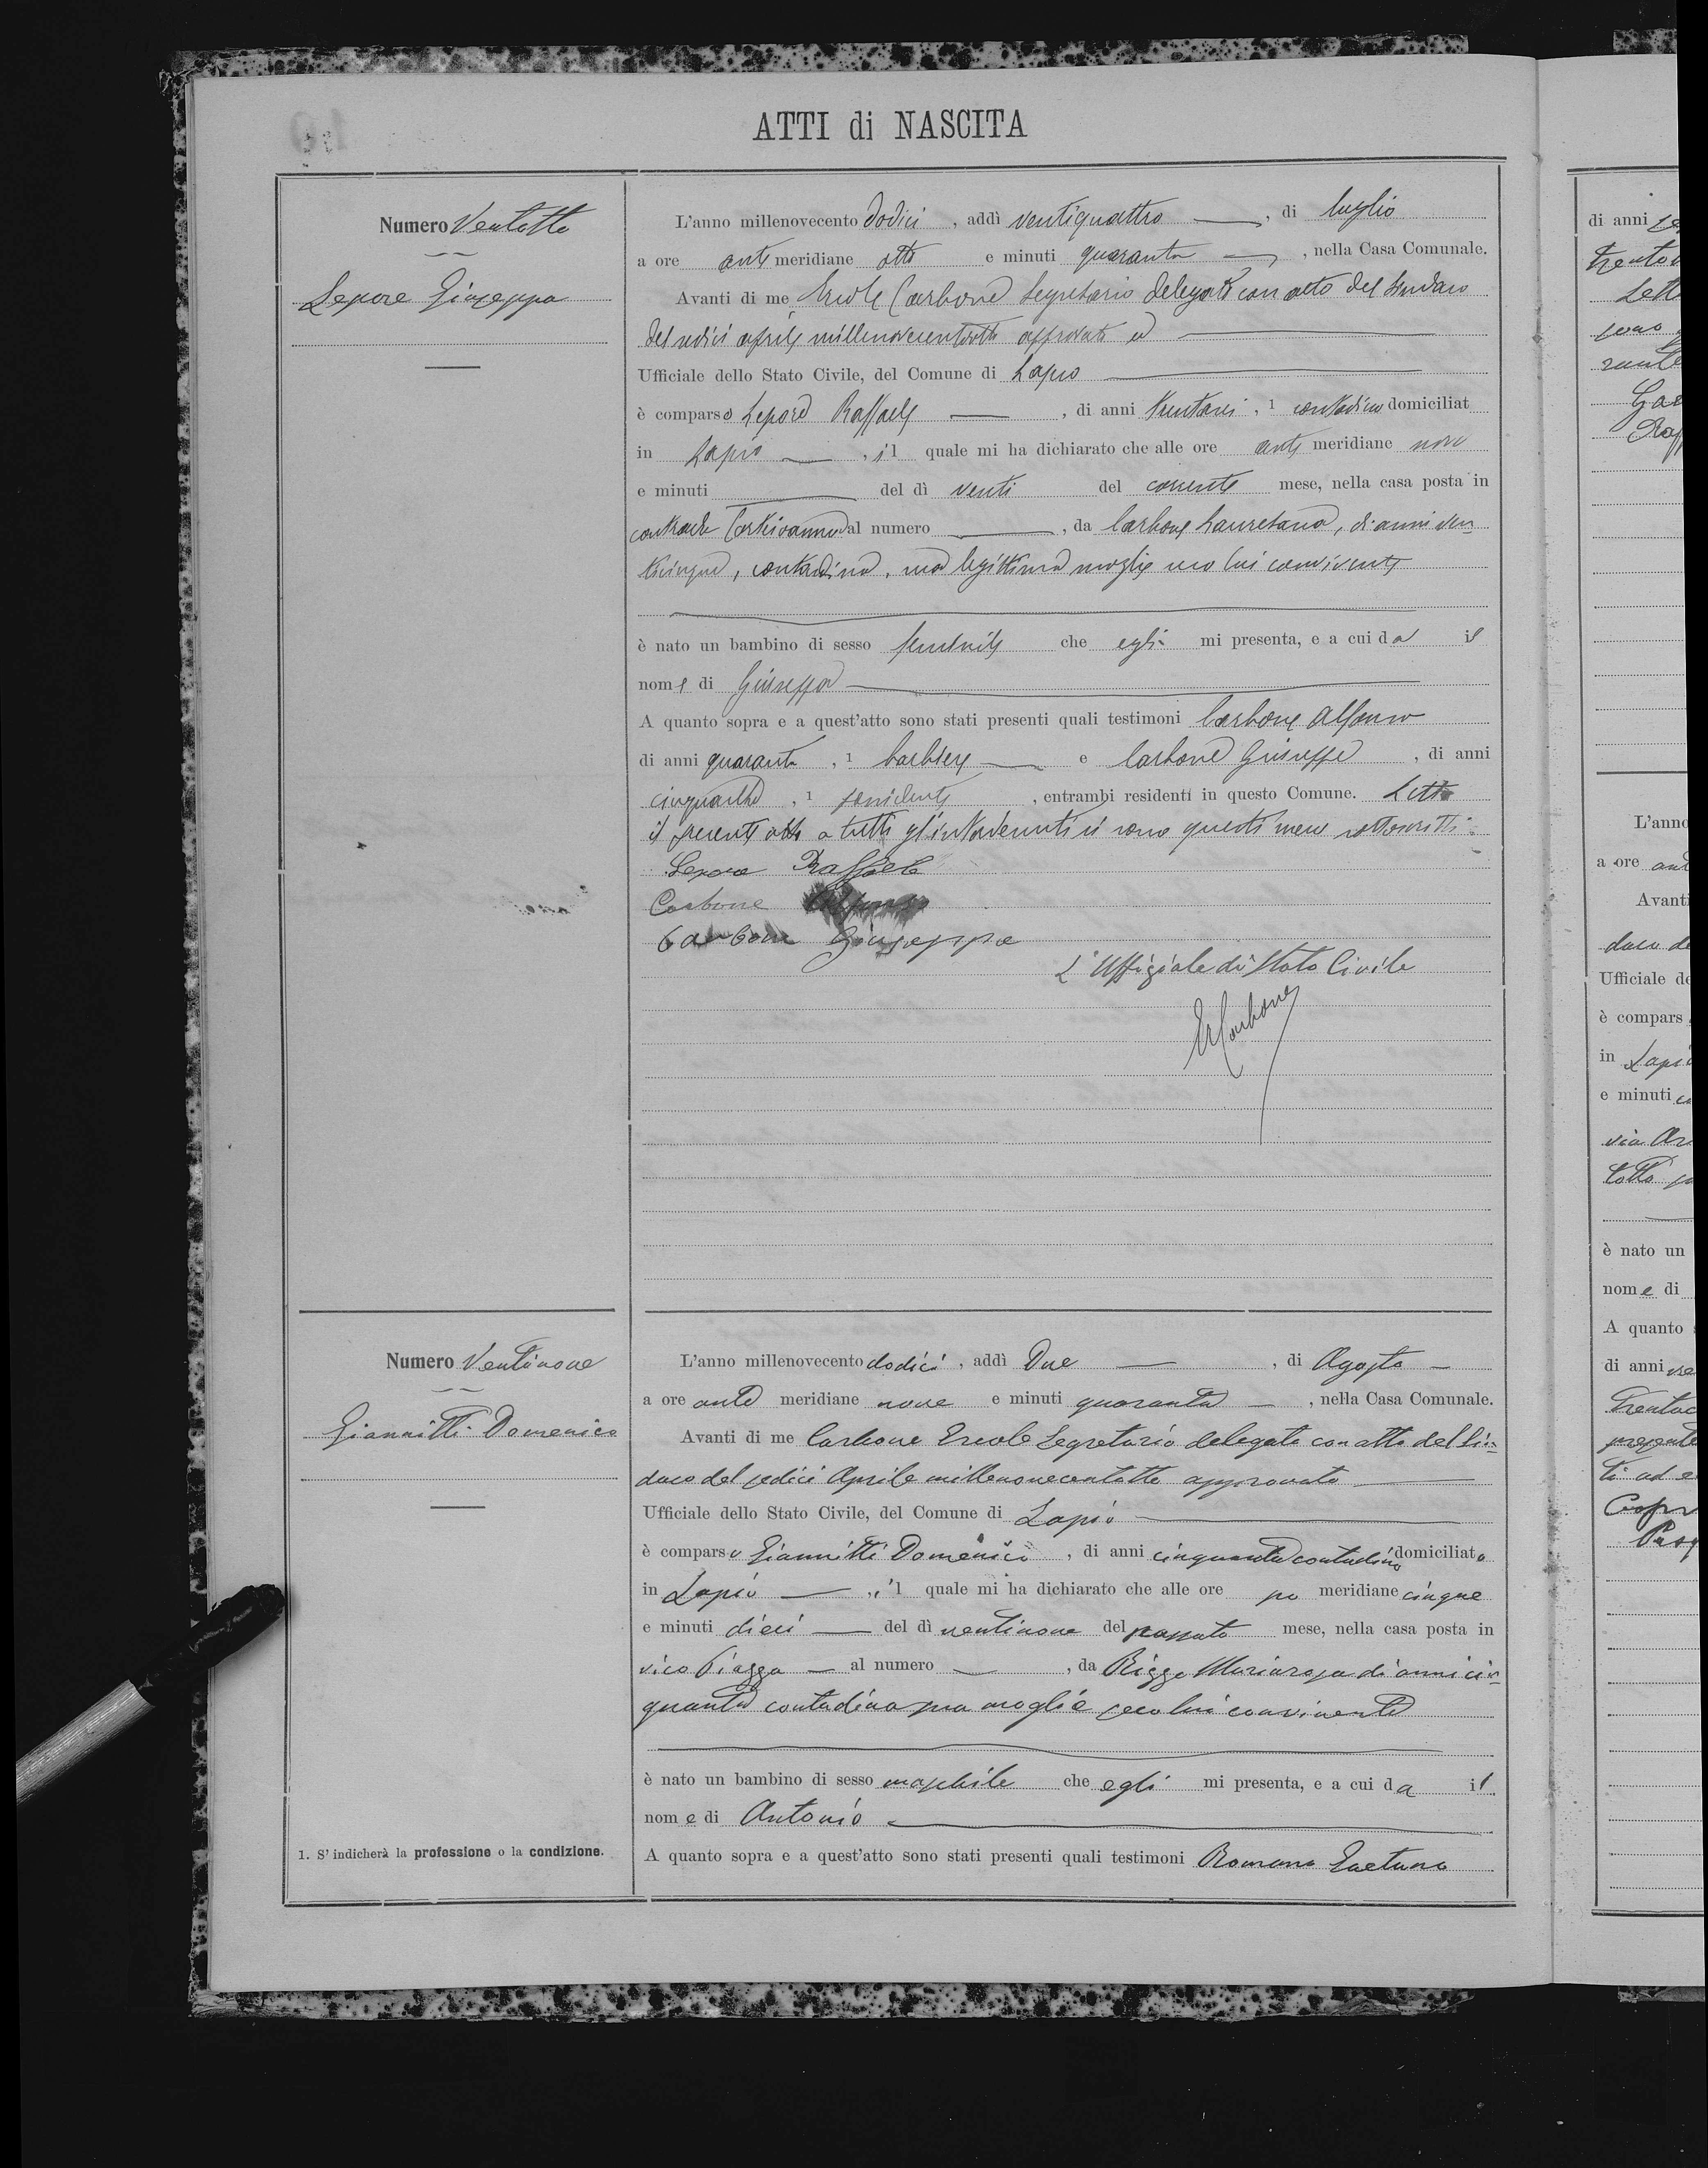 ATTI di NASCITA
Numero Ventotto
Lepore Giuseppa
L'anno millenovecento dodici, addì ventiquattro —, di luglio
a ore antimeridiane otto e minuti quaranta —, nella Casa Comunale.
Avanti di me Ercole Carbone Segretario delegato con atto del Sindaco
del sedici aprile millenovecentotto approvato ed —
Ufficiale dello Stato Civile, del Comune di Lapio —
è comparso Lepore Raffaele —, di anni, 1 contadino domiciliat
in Lapio —, il quale mi ha dichiarato che alle ore anti meridiane nove
e minuti — del dì venti del corrente mese, nella casa posta in
contrada al numero —, da Carbone Lauretana, di anni ven
ticinque, contadina, sua legittima moglie seco lui convivente
è nato un bambino di sesso feminile che egli mi presenta, e a cui da il
nome di Giuseppa —
A quanto sopra e a quest'atto sono stati presenti quali testimoni Carbone Alfonso
di anni quaranta, 1 barbiere — e Carbone Giuseppe, di anni
cinquanta, 1 possidente, entrambi residenti in questo Comune. Letto
il presente atto a tutti gl'intervenuti si sono questi meco sottoscritti.
Lepore Raffaele
Carbone Alfonso
Carbone Giuseppe
L'Uffiziale di Stato Civile
ECarbone
Numero Ventinove
Giannitti Domenico
L'anno millenovecento dodici, addì Due —, di Agosto —
a ore ante meridiane nove e minuti quaranta —, nella Casa Comunale.
Avanti di me Carbone Ercole Segretario delegato con atto del Sin=
daco del sedici Aprile millenovecentotto approvato —
Ufficiale dello Stato Civile, del Comune di Lapio —
è comparso Giannitti Domenico, di anni cinquanta contadino domiciliato
in Lapio —, il quale mi ha dichiarato che alle ore po meridiane cinque
e minuti dieci — del dì ventinove del passato mese, nella casa posta in
vico Piazza — al numero —, da Rizzo Mariarosa di anni cin=
quanta contadina sua moglie seco lui convivente
è nato un bambino di sesso maschile che egli mi presenta, e a cui da il
nome di Antonio —
A quanto sopra e a quest'atto sono stati presenti quali testimoni Romano Gaetano
1. S'indicherà la professione o la condizione.
di anni
L'anno
a ore
Avanti
Ufficiale
è compars
in Lapio
e minuti
via
è nato un
nome di
A quanto
di anni